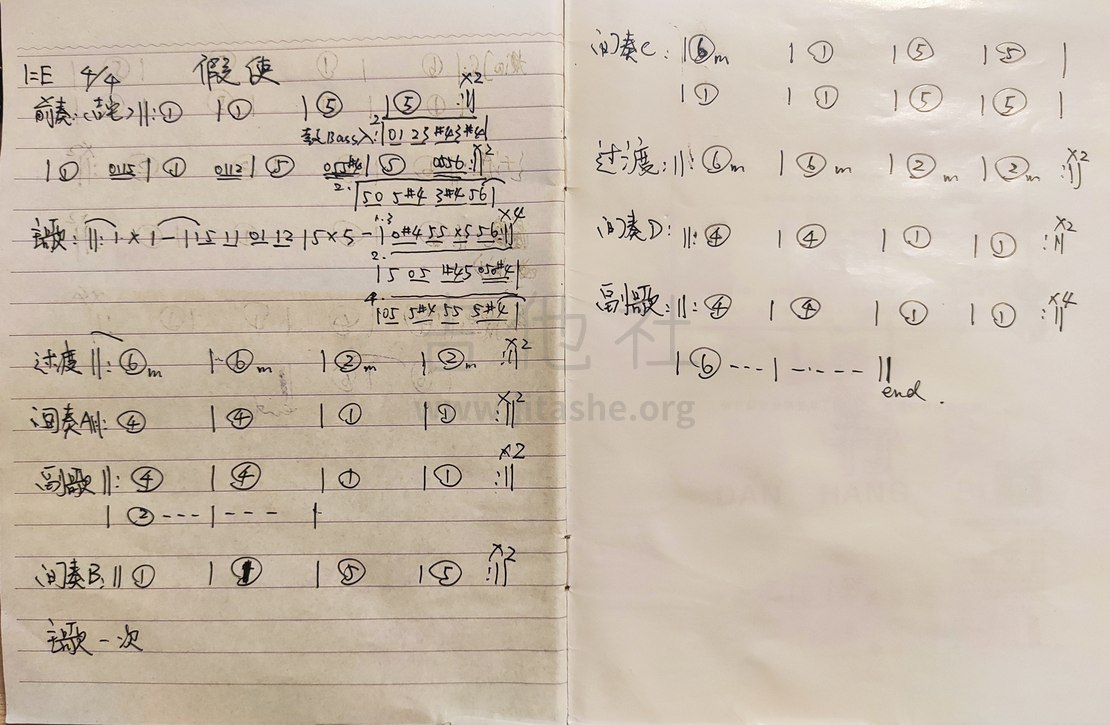 1=E 4/4 假使
前奏:(吉它)||:① |① |⑤ |⑤ :|| ×2
2. |01 23 #43 #4|
|① 0115|① 0112|⑤ |⑤ 0556:|| ×2
2. |50 5#4 3#4 56|
主歌:||: 1 × 1 - |1 5 11 01 12 |5 × 5 - |0#4 55 ×5 56:|| ×4
2. |5 05 #45 050#4|
4. |05 5#4 55 5#4|
过度||:⑥m |⑥m |②m |②m :|| ×2
间奏A||:④ |④ |① |① :|| ×2
副歌||:④ |④ |① |① :|| ×2
|②---|---- |
间奏B:||① |① |⑤ |⑤ :|| ×2
主歌一次
间奏C:|⑥m |① |⑤ |⑤ |
|① |① |⑤ |⑤ |
过渡:||:⑥m |⑥m |②m |②m :|| ×2
间奏D:||:④ |④ |① |① :|| ×2
副歌:||:④ |④ |① |① :|| ×4
|⑥---|---- ||
end.
吉他社
www.jitashe.org